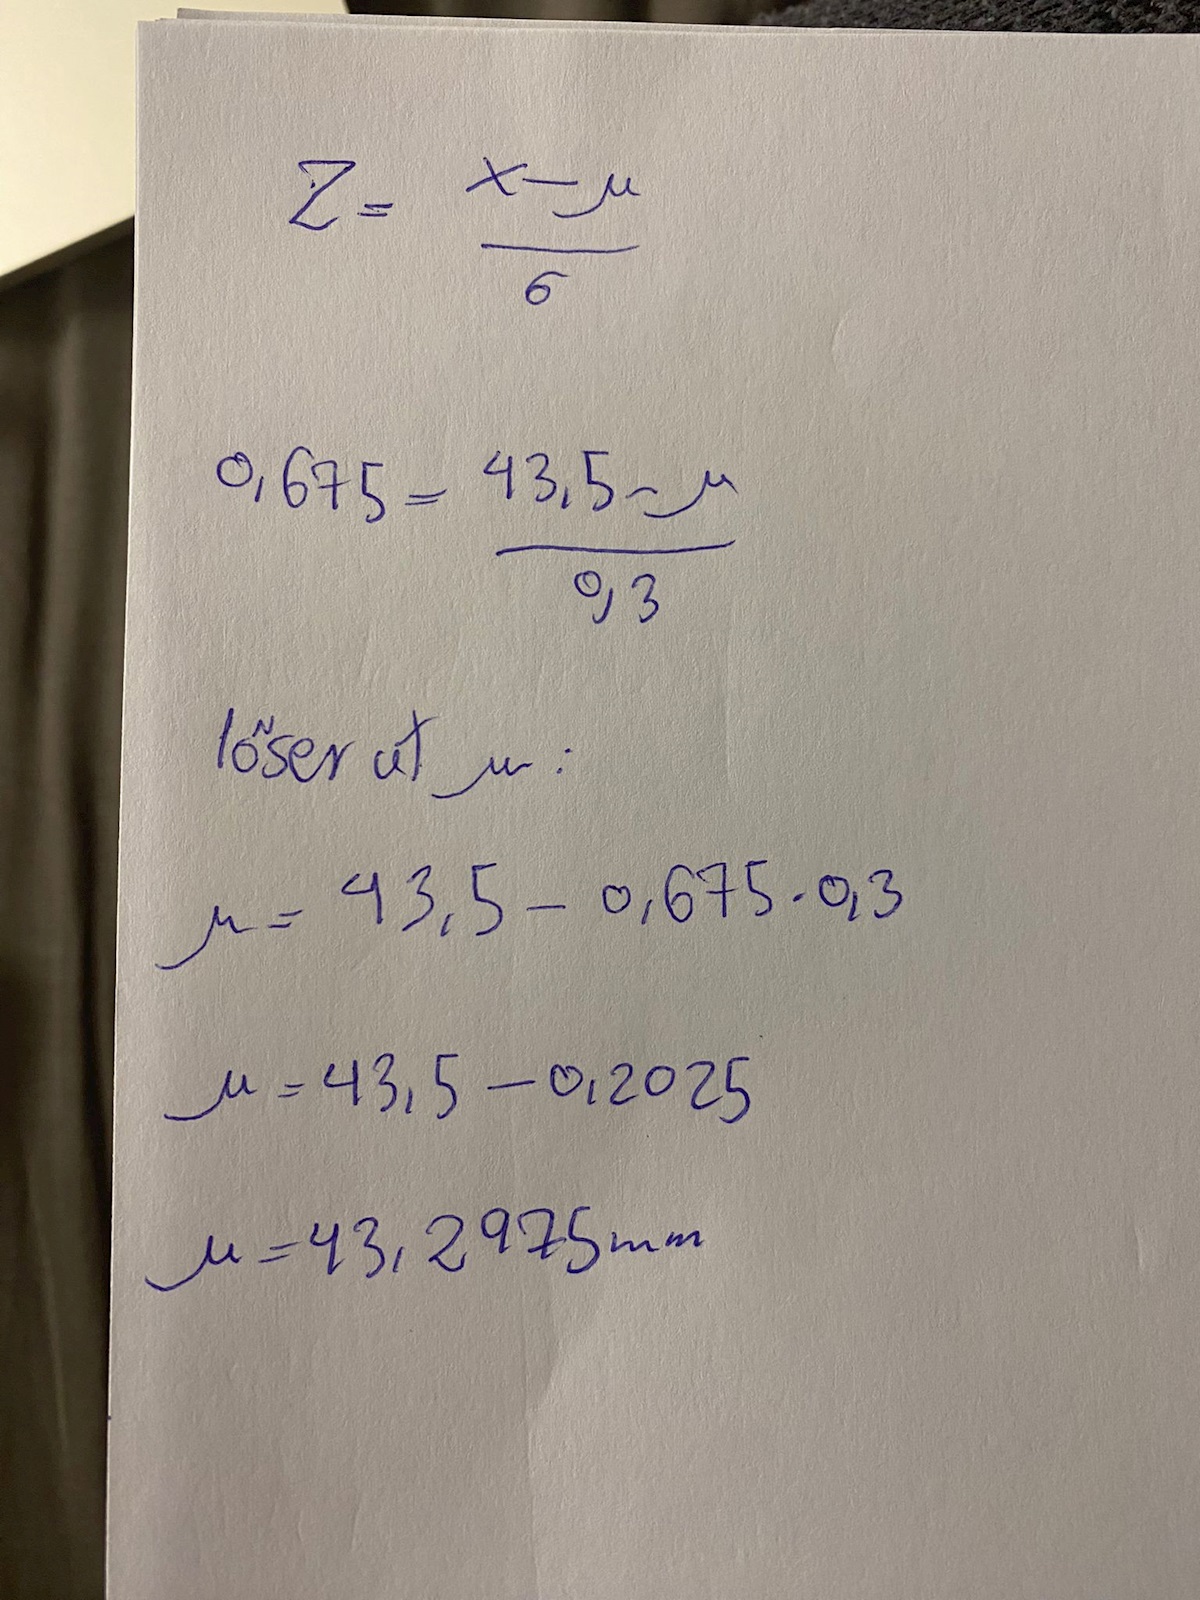 Z = x - μ
σ
0,675 = 43,5 - μ
0,3
löser ut μ:
μ = 43,5 - 0,675 · 0,3
μ = 43,5 - 0,2025
μ = 43,2975 mm